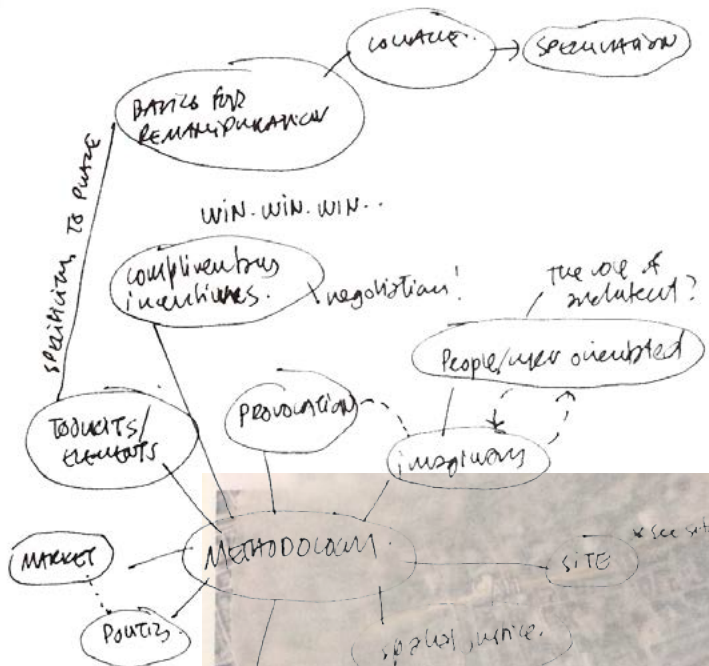 COLLAGE.
SPECULATION
BASICS FOR
REMANIPULATION
SPECIFICIONS TO PLACE
WIN. WIN. WIN..
complimentary
incentives.
negotiation!
the role of
architect?
People/user oriented
PROVOCATION
TOOLKITS/
ELEMENTS
imaginary
MARKET
METHODOLOGY.
SITE
* see
POLITICS.
spatial justice.